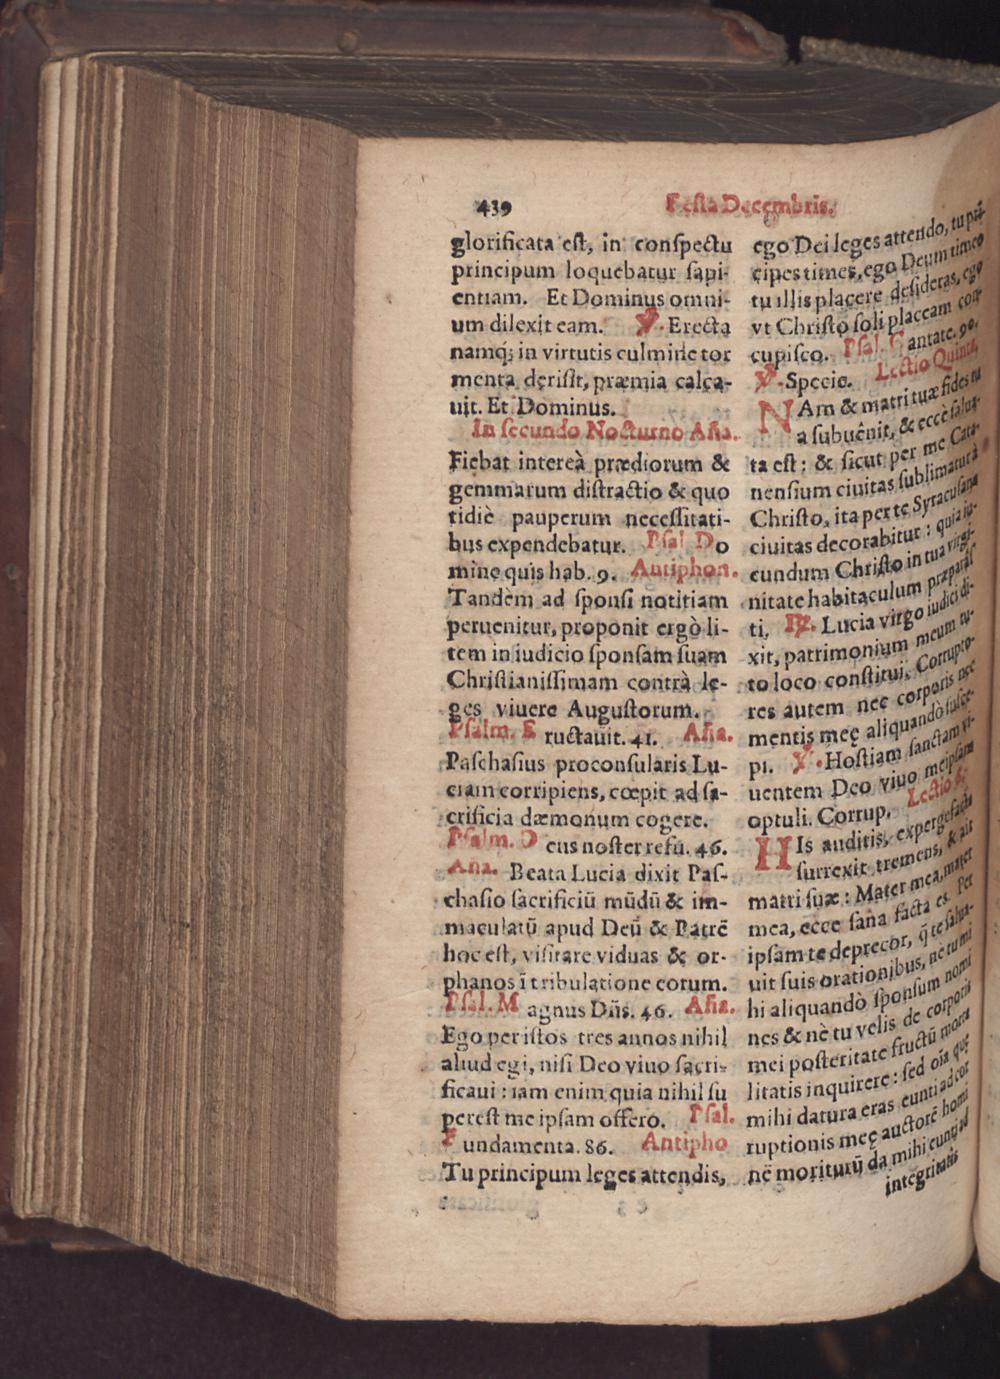 439
Festa Decembris.
glorificata est, in conspectu
principum loquebatur sapi-
entiam. Et Dominus omni-
um dilexit eam. ℣. Erecta
namq́; in virtutis culmine tor
menta derisit, præmia calca-
uit. Et Dominus.
In secundo Nocturno Aña.
Fiebat intereà prædiorum &
gemmarum distractio & quo
tidiè pauperum necessitati-
bus expendebatur. Psal Do
mine quis hab. 9. Antiphon.
Tandèm ad sponsi notitiam
peruenitur, proponit ergò li-
tem in iudicio sponsam suam
Christianissimam contrà le-
ges viuere Augustorum.
Psalm. Eructauit. 41. Aña.
Paschasius proconsularis Lu-
ciam corripiens, cœpit ad sa-
crificia dæmonum cogere.
Psalm. Deus noster refu. 46.
Aña. Beata Lucia dixit Pas-
chasio sacrificiū mūdū & im-
maculatū apud Deū & Patrē
hoc est, visitare viduas & or-
phanos ī tribulatione eorum.
Psal. Magnus Dñs. 46. Aña.
Ego per istos tres annos nihil
aliud egi, nisi Deo viuo sacri-
ficaui : iam enim quia nihil su
perest me ipsam offero. Psal.
Fundamenta. 86. Antipho
Tu principum leges attendis,
ego Dei leges attendo, tu prī-
cipes times, ego Deum timeo
tu illis placere desideras, ego
vt Christo soli placeam con-
cupisco. Psal. Cantate. 90.
℣. Specie. Lectio Quinta,
NAm & matri tuæ fides tu
a subuênit, & eccè salua-
ta est : & sicut per me Cata-
nensium ciuitas sublimatur à
Christo, ita per te Syracusana
ciuitas decorabitur : quia iu-
cundum Christo in tua virgi-
nitate habitaculum præparas-
ti, ℟. Lucia virgo iudici di-
xit, patrimonium meum tu-
to loco constitui, Corrupto-
res autem nec corporis nec
mentis meę aliquandò susce-
pi. ℣. Hostiam sanctam vi-
uentem Deo viuo meipsam
optuli. Corrup. Lectio 6;
HIs auditis, expergefacta
surrexit tremens, & ait
matri suæ : Mater mea, mater
mea, ecce sana facta es. Per
ipsam te deprecor, q̄ te salua-
uit suis orationibus, nè tu mi
hi aliquandò sponsum nomi
nes & nè tu velis de corporis
mei posteritate fructū morta
litatis inquirere : sed oīa quę
mihi datura eras eunti ad cor
ruptionis meę auctorē homi
nē moriturū da mihi eunti ad
integritatis